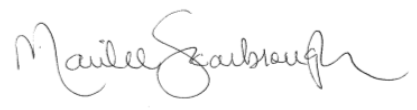 Marilee Scarbrough